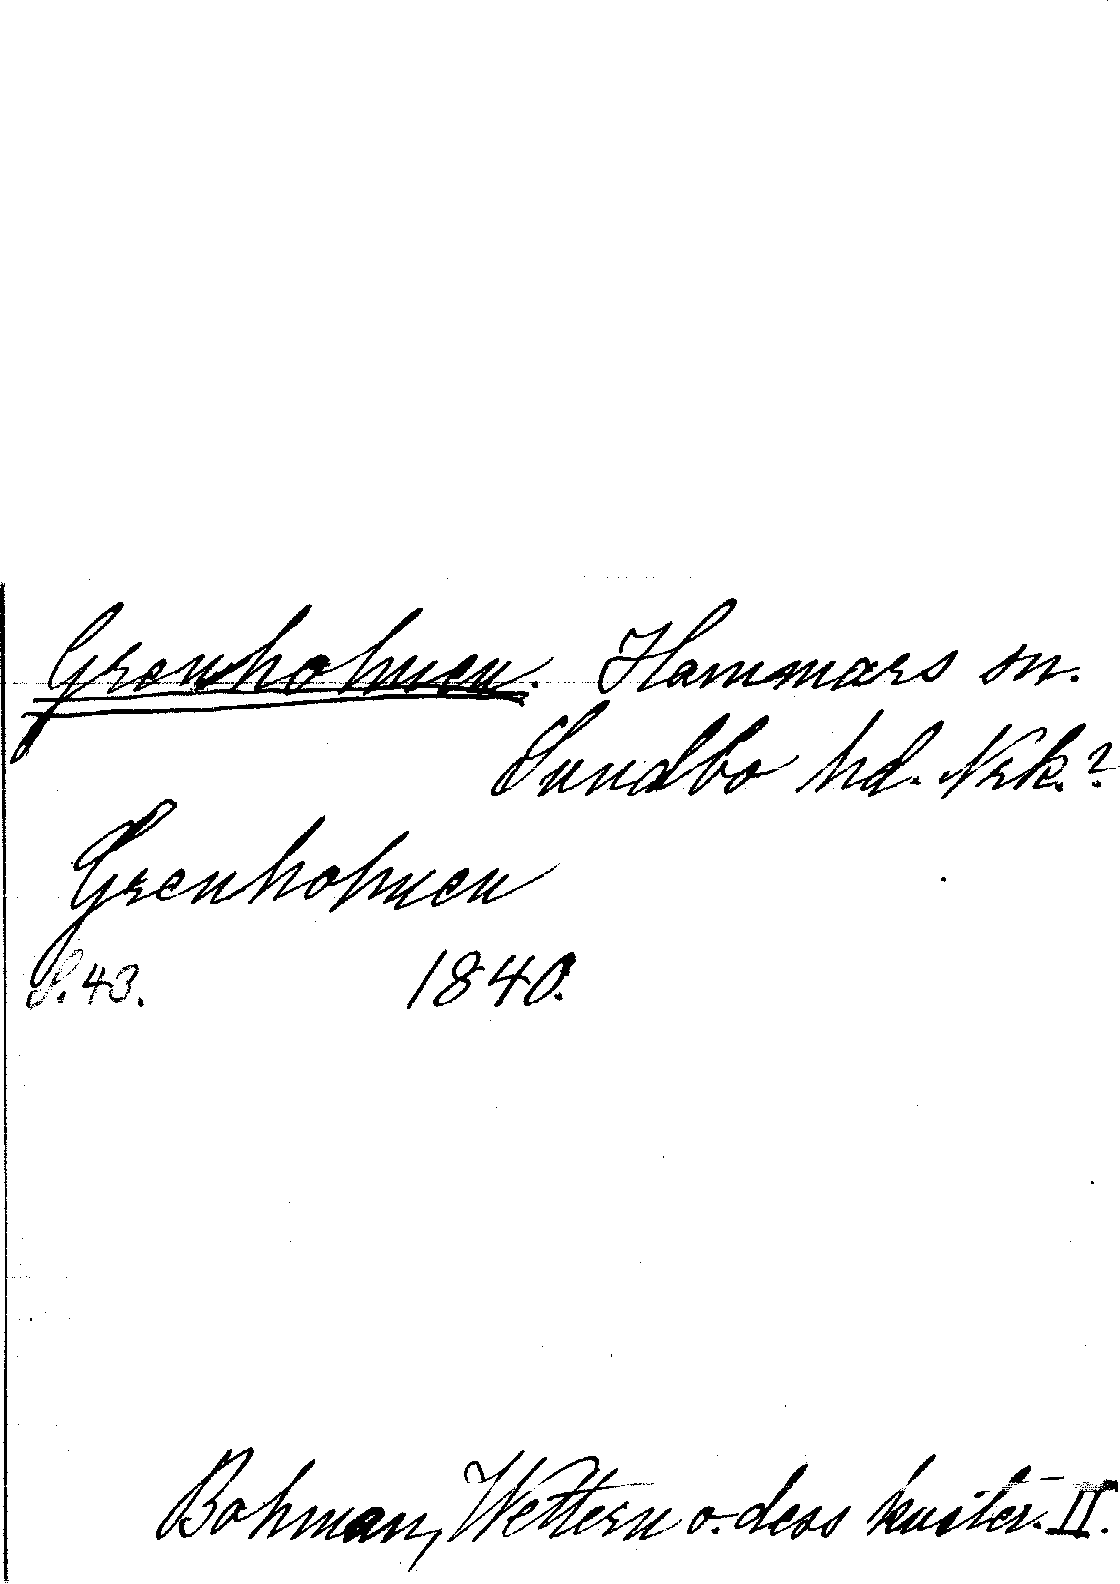 Grenholmen. Hammars sn.
Sundbo hd. Nrk.?
Grenholmen
S. 43. 1840.
Bohman, Wettern o. dess kuster. II.